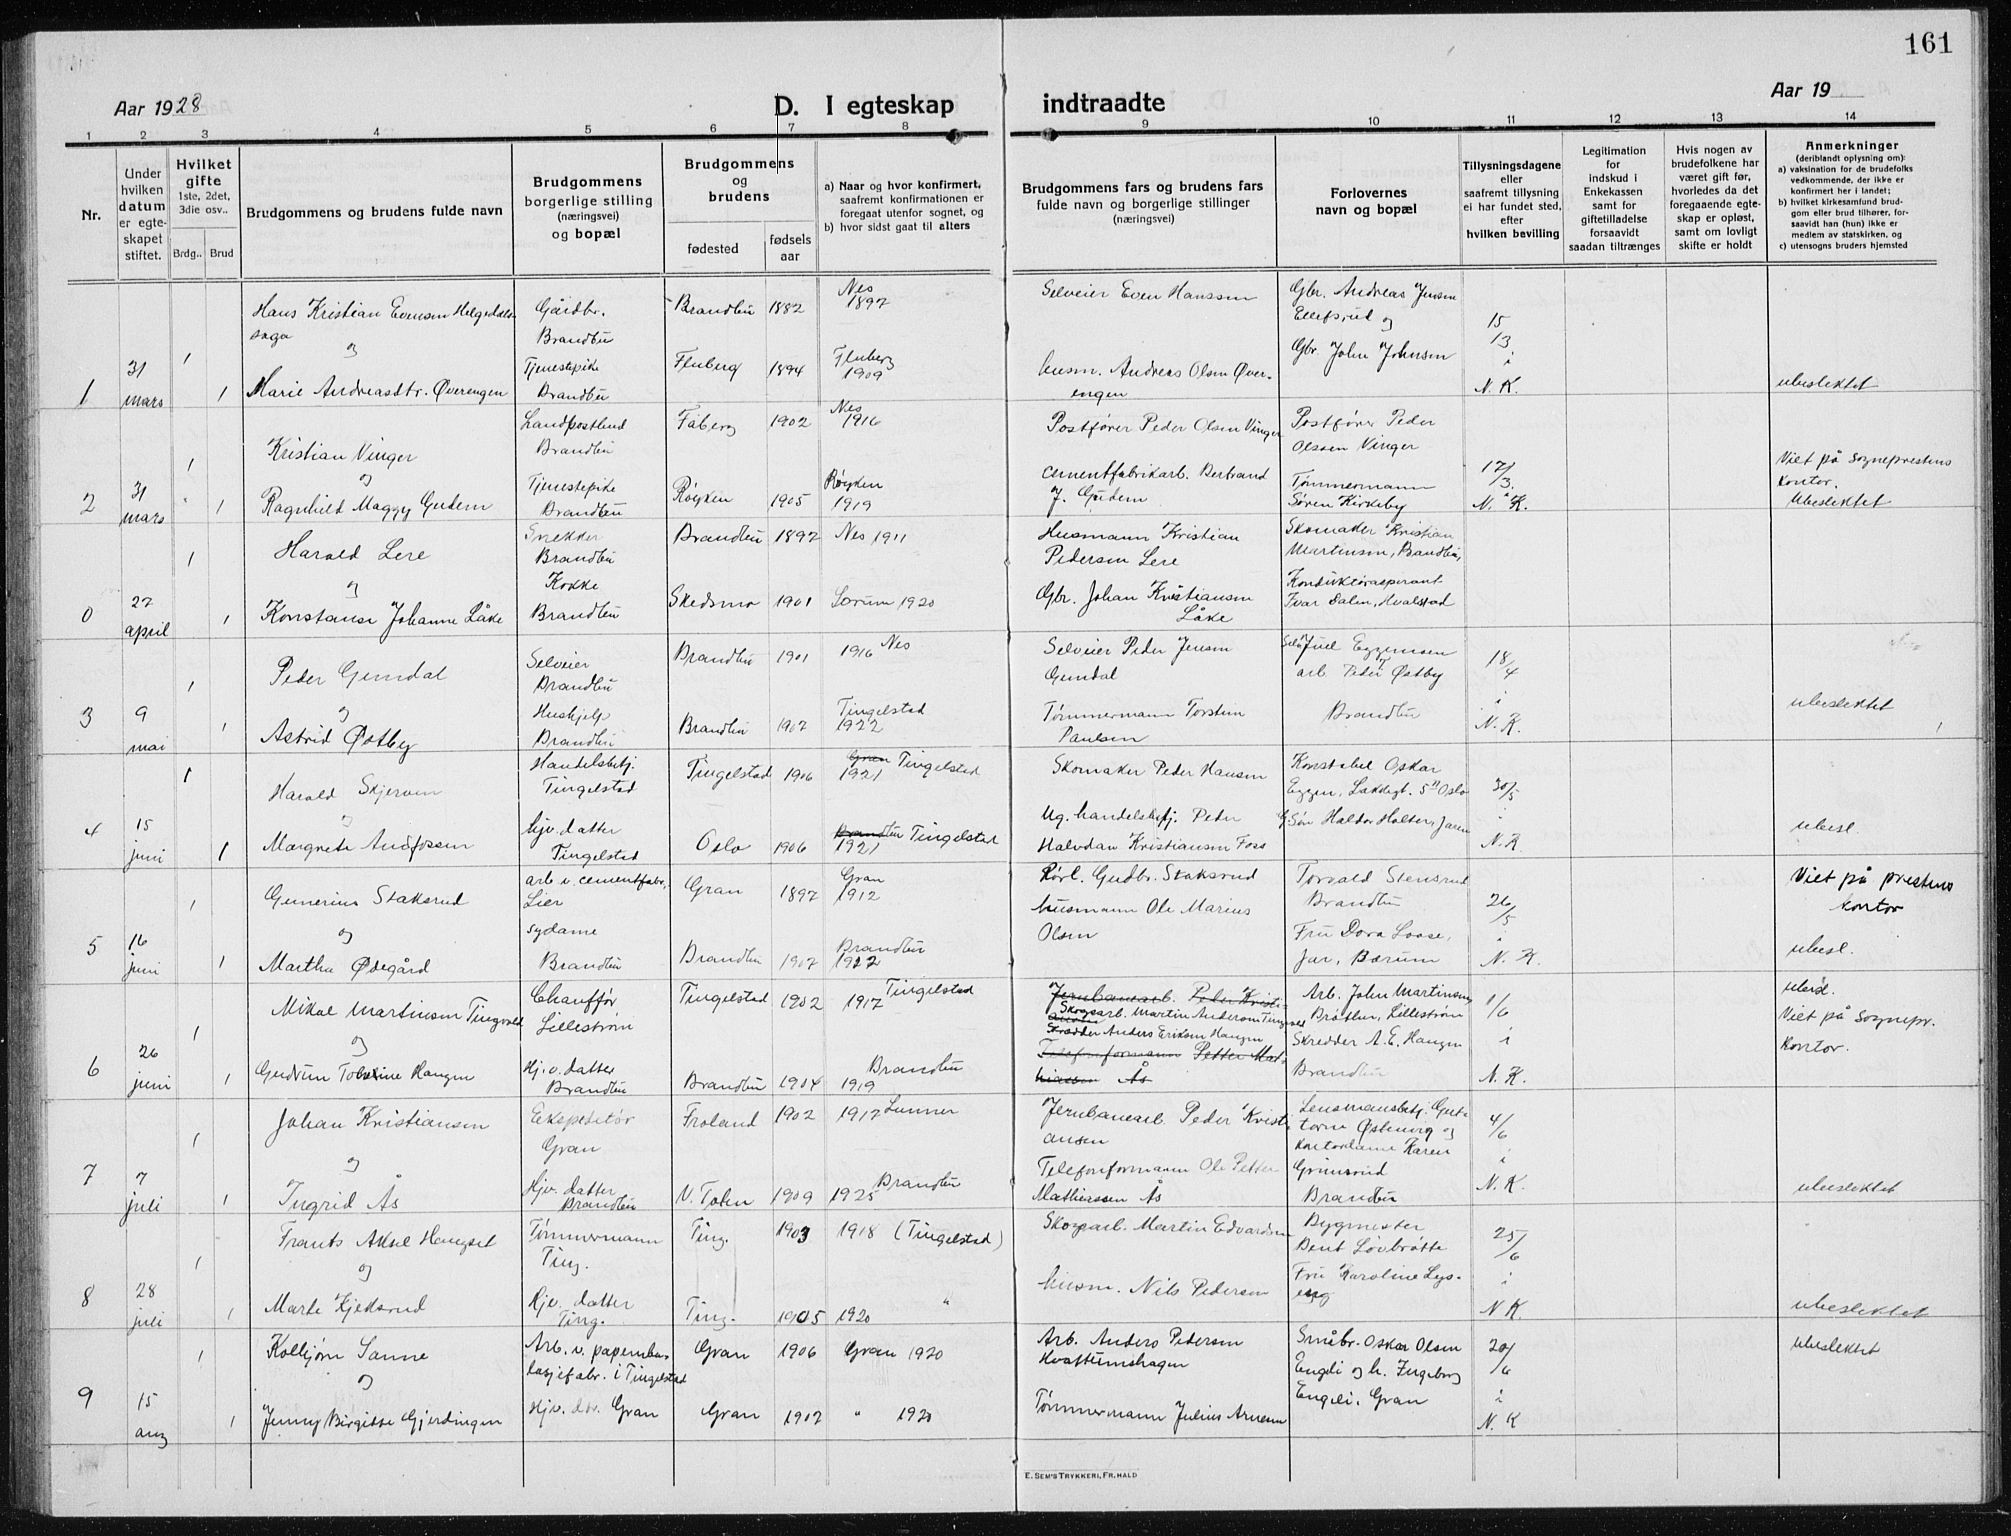 161
Aar 1928
D. I egteskap
indtraadte
Aar 19
1 2 3 4 5 6 7 8 9 10 11 12 13 14
Nr.
Under hvilken datum er egteskapet stiftet.
Hvilket gifte 1ste, 2det, 3die osv..
Brdg.. Brud
Brudgommens og brudens fulde navn
Brudgommens borgerlige stilling (næringsvei) og bopæl
Brudgommens og brudens
fødested
fødsels aar
a) Naar og hvor konfirmert, saafremt konfirmationen er foregaat utenfor sognet, og
b) hvor sidst gaat til alters
Brudgommens fars og brudens fars fulde navn og borgerlige stillinger (næringsvei)
Forlovernes navn og bopæl
Tillysningsdagene eller saafremt tillysning ei har fundet sted, efter hvilken bevilling
Legitimation for indskud i Enkekassen samt for giftetilladelse forsaavidt saadan tiltrænges
Hvis nogen av brudefolkene har været gift før, hvorledes da det foregaaende egteskap er opløst, samt om lovligt skifte er holdt
Anmerkninger
(deriblandt oplysning om):
a) vaksination for de brudefolks vedkommende, der ikke er konfirmert her i landet;
b) hvilket kirkesamfund brudgom eller brud tilhører, forsaavidt han (hun) ikke er medlem av statskirken, og
c) utensogns bruders hjemsted
1
31 mars
1 1
Hans Kristian Evensen Helgedalssaga
og
Marie Andreasdtr. Øverengen
Gårdbr. Brandbu
Tjenestepike Brandbu
Brandbu 1882 Nes 1897
Fluberg 1894 Fluberg 1909
Selveier Even Hanssen
husm. Andreas Olsen Øverengen
Gbr. Andreas Jensen Ellefsrud og
Gbr. John Johnsen
15 13 i N. K.
ubeslektet
2
31 mars
1 1
Kristian Vinger
og
Ragnhild Maggy Gudem
Landpostbud Brandbu
Tjenestepike Brandbu
Fåberg 1902 Nes 1916
Røyken 1905 Røyken 1919
Postfører Peder Olsen Vinger
Cementfabrikarb. Bertrand J. Gudem
Postfører Peder Olssen Vinger
Tømmermann Søren Kirkeby
17/3. i N. K.
Viet på sogneprestens kontor.
Ubeslektet
0
27 april
1 1
Harald Lere
og
Konstanse Johanne Låke
Snekker Brandbu
Kokke Brandbu
Brandbu 1897 Nes 1911
Skedsmo 1901 Sørum 1920
Husmann Kristian Pedersen Lere
Gbr. Johan Kristiansen Låke
Skomaker Kristian Martinsen, Brandbu,
Konduktøraspirant Ivar Dalen, Hvalstad
3
9 mai
1 1
Peder Gumdal
og
Astrid Østby
Selveier Brandbu
Hushjelp Brandbu
Brandbu 1901 1916 Nes
Brandbu 1907 Tingelstad 1922
Selveier Peder Jensen Gumdal
Tømmermann Torstein Paulsen
Selv. Juel Eggensen
arb. Peder T. Østby
Brandbu
18/4 i N. K.
ubeslektet
4
15 juni
1 1
Harald Skjerven
og
Margrete Andfossen
Handelsbetj. Tingelstad
hjv. datter Tingelstad
Tingelstad 1906 Gran Tingelstad 1921
Oslo 1906 Brandbu Tingelstad 1921
Skomaker Peder Hansen
Ug. handelsbetj. Peder Halvdan Kristiansen Foss
Konstabel Oskar Eggen, Lakkegt. 5 II Oslo
G. Søn Haldor Holter, Jaren
30/5 i N. K.
ubesl.
5
16 juni
1 1
Gunerius Staksrud
og
Martha Ødegård
arb. v. cementfabr., Lier
sydame Brandbu
Gran 1897 Gran 1912
Brandbu 1907 Brandbu 1922
Rørl. Gudbr. Staksrud
husmann Ole Marius Olsen
Torvald Stensrud Brandbu
Fru Dora Loose, Jar, Bærum
26/5 i N. K.
Viet på prestens kontor
ubesl.
6
26 juni
1 1
Mikal Martinsen Tingvold
og
Gudrun Tobine Haugen
Chauffør Lillestrøm
Hj. v. datter Brandbu
Tingelstad 1902 1917 Tingelstad
Brandbu 1904 1919 Brandbu
Jernbanearb. Peder Kristiansen
Skogsarb. Martin Andersen Tingvold
Skredder Anders Eriksen Haugen
Telefonformann Petter Mathiassen Ås
Arb. John Martinsen Bråthen, Lillestrøm
Skredder A. E. Haugen Brandbu
1/6 i N. K.
ubesl.
Viet på sognepr. kontor.
7
7 juli
1 1
Johan Kristiansen
og
Ingrid Ås
Ekspeditør Gran
Hjv. datter Brandbu
Froland 1902 1917 Lunner
V. Toten 1909 1925 Brandbu
Jernbanearb. Peder Kristiansen
Telefonformann Ole Petter Mathiassen Ås
Lensmansbetj. Guttorm Østenvig og kontordame Karen Grimsrud
Brandbu
4/6 i N. K.
ubeslektet
8
28 juli
1 1
Frants Aksel Hengset
og
Marte Kjeksrud
Tømmermann Ting.
Hjv. datter Ting.
Ting. 1903 1918 (Tingelstad)
Ting. 1905 1920 "
Skogsarb. Martin Edvardsen
husm. Nils Pedersen
Bygmester Bent Løvbråtte
Fru Karoline Lyseng
25/6 i N. K.
ubeslektet
9
15 aug
1 1
Kolbjørn Sanne
og
Jenny Birgitte Gjerdingen
Arb. v. papemballasjefabr. i Tingelstad
Hjv. dtr. Gran
Gran 1906 Gran 1920
Gran 1907 " 1920
Arb. Anders Pedersen Hvattumshagen
Tømmermann Julius Arnesen
Småbr. Oskar Olsen Engeli og h. Ingeborg Engeli, Gran
20/6 i N. K
ubeslektet
E. SEM'S TRYKKERI, FR.HALD